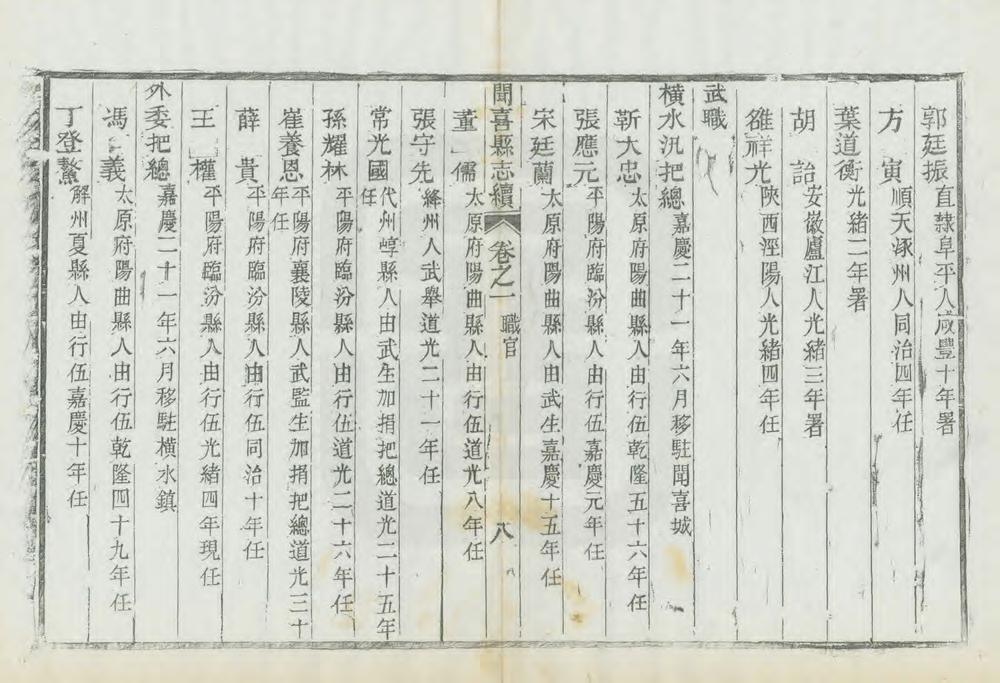 郭廷振直隸阜平人咸豐十年署
方寅順天涿州人同治四年任
葉道衡光緒二年署
胡詒安徽廬江人光緒三年署
雒祥光陝西涇陽人光緒四年任
武職
橫水汛把總嘉慶二十一年六月移駐聞喜城
靳大忠太原府陽曲縣人由行伍乾隆五十六年任
張應元平陽府臨汾縣人由行伍嘉慶元年任
宋廷蘭太原府陽曲縣人由武生嘉慶十五年任
聞喜縣志續 卷之一 職官 八
董儒太原府陽曲縣人由行伍道光八年任
張守先絳州人武舉道光二十一年任
常光國代州崞縣人由武生加捐把總道光二十五年任
孫耀林平陽府臨汾縣人由行伍道光二十六年任
崔養恩平陽府襄陵縣人武監生加捐把總道光三十年任
薛貴平陽府臨汾縣人由行伍同治十年任
王權平陽府臨汾縣人由行伍光緒四年現任
外委把總嘉慶二十一年六月移駐橫水鎮
馮義太原府陽曲縣人由行伍乾隆四十九年任
丁登鰲解州夏縣人由行伍嘉慶十年任